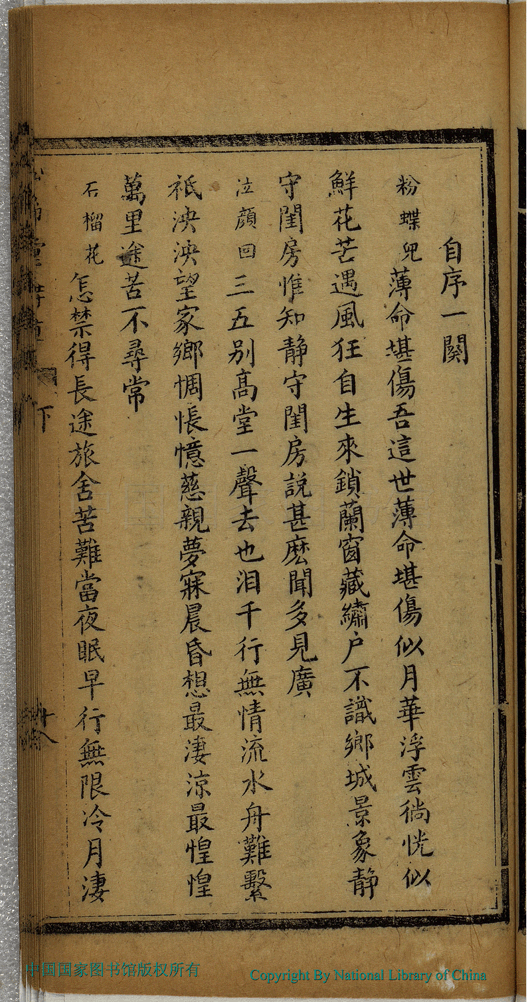 自序一闋
粉蝶兒薄命堪傷吾這世薄命堪傷似月華浮雲徜恍似
鮮花苦遇風狂自生來鎖蘭窗藏繡户不識鄉城景象靜
守閨房惟知靜守閨房說甚麽聞多見廣
泣顔回三五别高堂一聲去也泪千行無情流水舟難繫
祇泱泱望家鄉惆悵憶慈親夢寐晨昏想最淒凉最惶惶
萬里途苦不尋常
石榴花怎禁得長途旅舍苦難當夜眠早行無限冷月淒
下
中国国家图书馆版权所有
Copyright By National Library of China